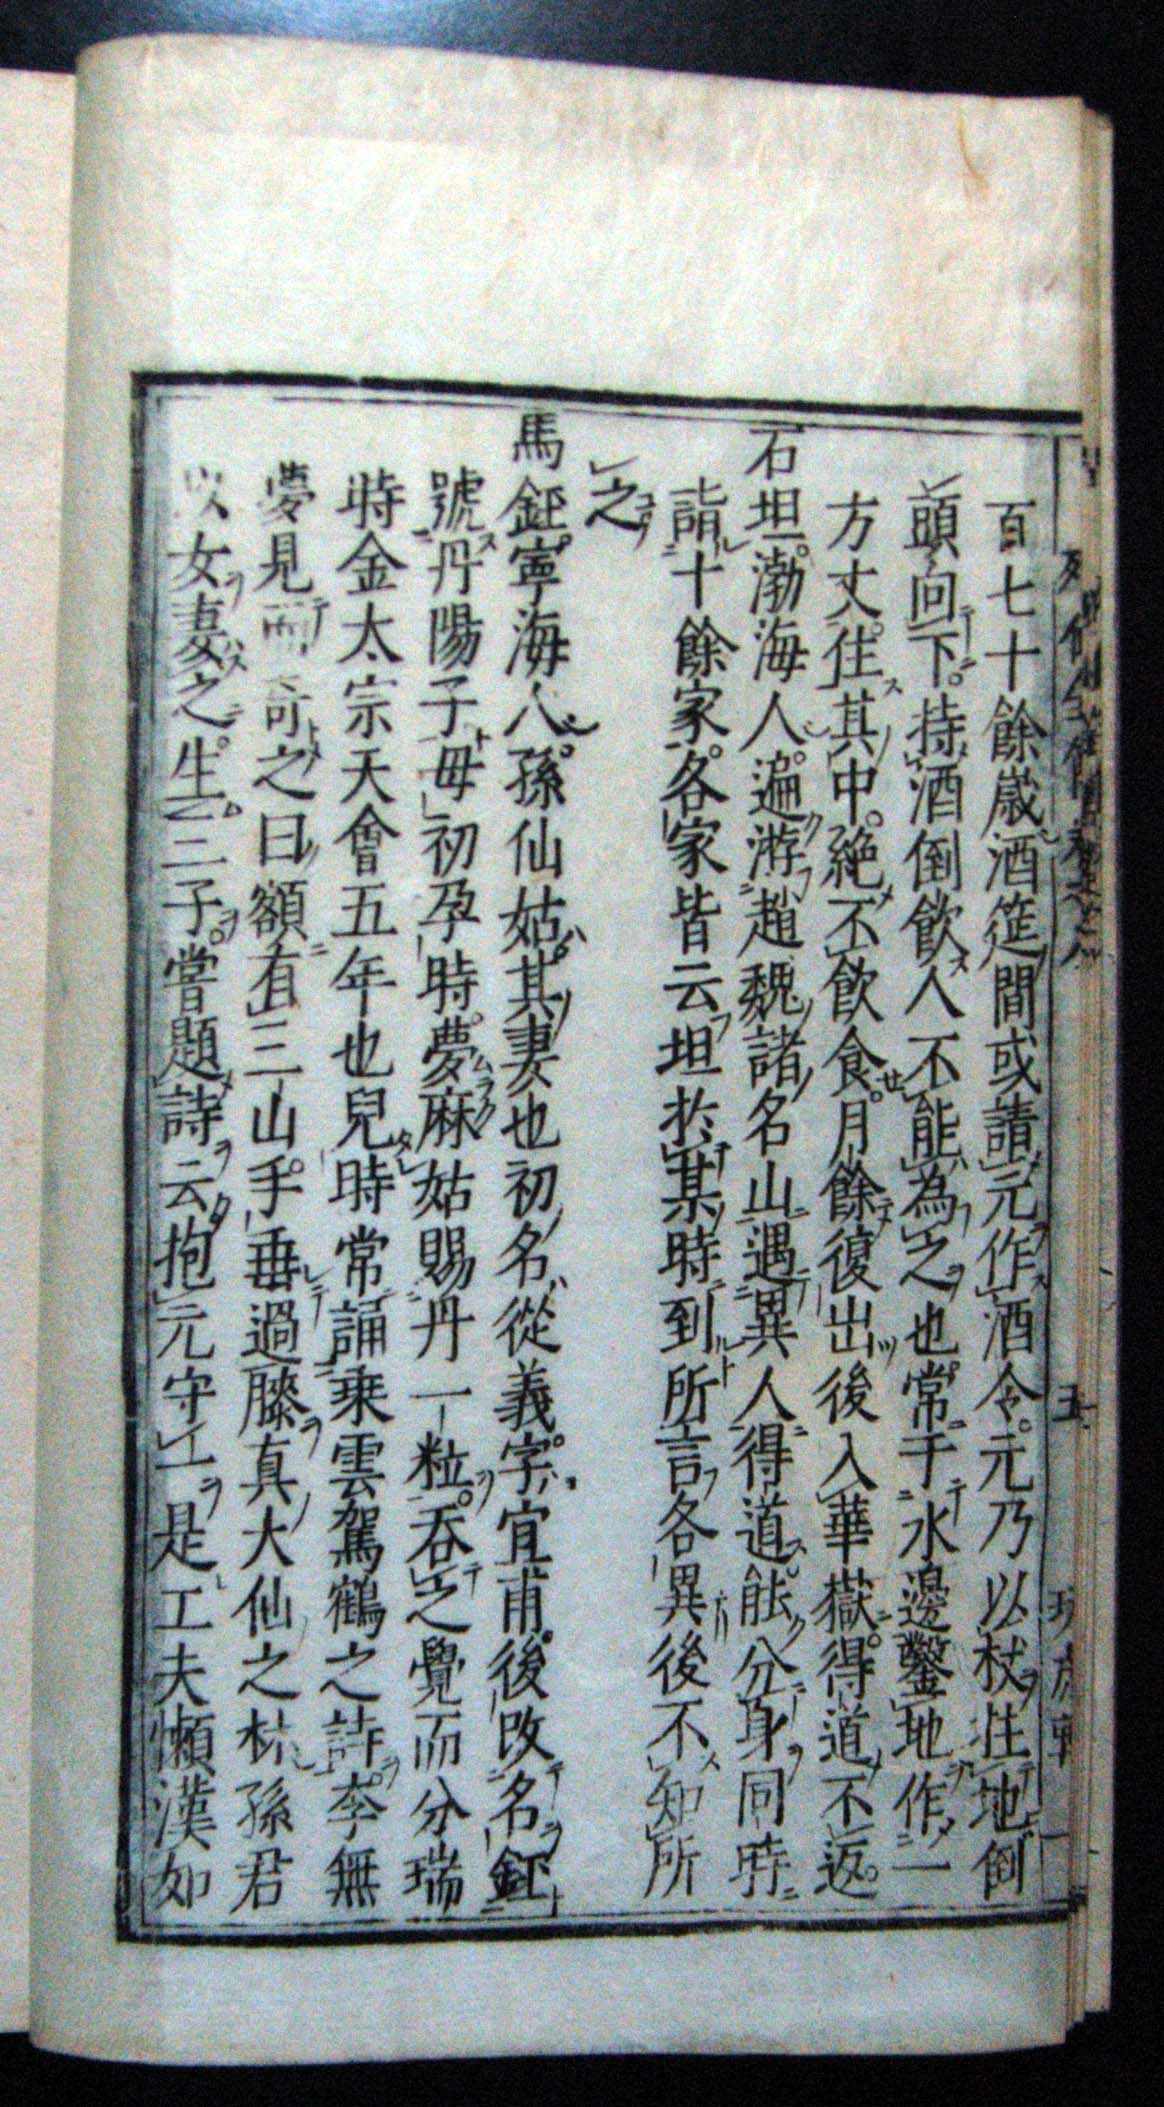 百七十餘歲酒筵間或請元作酒令元乃以杖拄地倒
頭向下持酒倒飲人不能為之也常于水邊鑿地作一
方丈住其中絶不飲食月餘復出後入華嶽得道不返
石坦渤海人遍游趙魏諸名山遇異人得道能分身同時
詣十餘家各家皆云坦於某時到所言各異後不知所
之
馬鈺寧海人孫仙姑其妻也初名從義字宜甫後改名鈺
號丹陽子母初孕時夢麻姑賜丹一粒吞之覺而分瑞
時金太宗天會五年也兒時常誦乘雲駕鶴之詩李無
夢見而奇之曰額有三山手垂過膝真大仙之材孫君
以女妻之生三子嘗題詩云抱元守一是工夫懶漢如